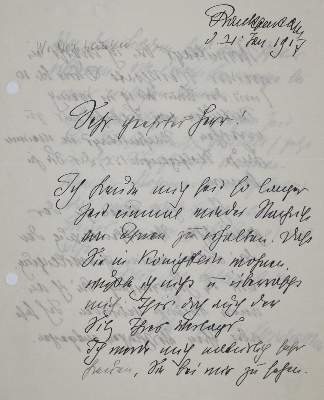 Frankfurt a/M
d. 21. Jan. 1917
Sehr geehrter Herr!
Ich freute mich seit so langer
Zeit einmal wieder Nachricht
von Ihnen zu erhalten. Daß
Sie in Königstein wohnen,
wußte ich nicht u überrascht
mich. Ihres doch auch der
Sitz Ihres Verlags
Ich werde mich natürlich sehr
freuen, Sie bei mir zu sehen.